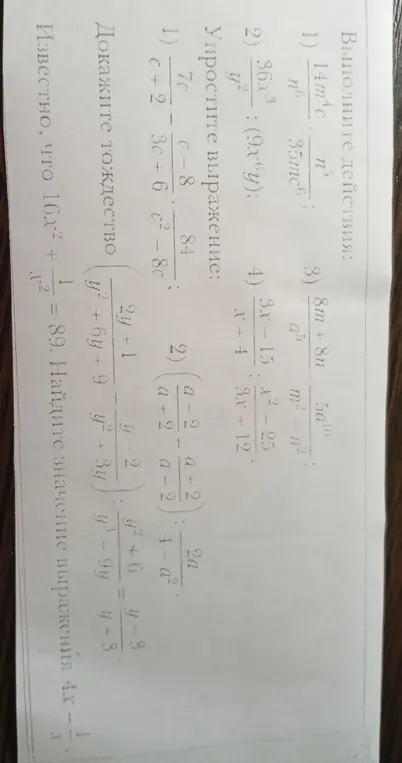 Выполните действия:
1) 14m⁴c / n⁶ · n⁵ / 35mc⁶; 3) 8m + 8n / a⁵ · 5a¹⁰ / m² − n²;
2) 36x³ / y² : (9x⁶y); 4) 3x − 15 / x + 4 : x² − 25 / 3x + 12.
Упростите выражение:
1) 7c / c + 2 − c − 8 / 3c + 6 · 84 / c² − 8c; 2) (a − 2 / a + 2 − a + 2 / a − 2) : 2a / 4 − a².
Докажите тождество (2y + 1 / y² + 6y + 9 − y − 2 / y² + 3y) : y² + 6 / y³ − 9y = y − 3 / y + 3.
Известно, что 16x² + 1 / x² = 89. Найдите значение выражения 4x − 1 / x.